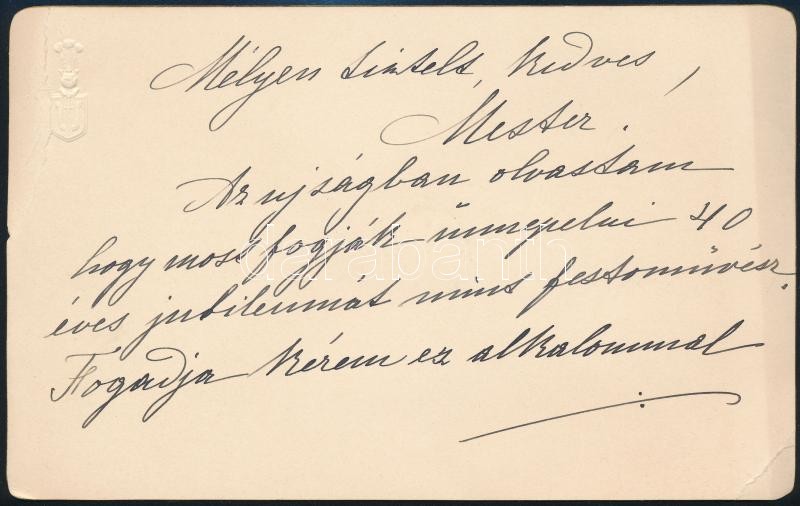 Mélyen tisztelt, kedves,
Mester.
Az ujságban olvastam
hogy most fogják ünnepelni 40
éves jubileumát mint festőművész.
Fogadja kérem ez alkalommal
darabanth